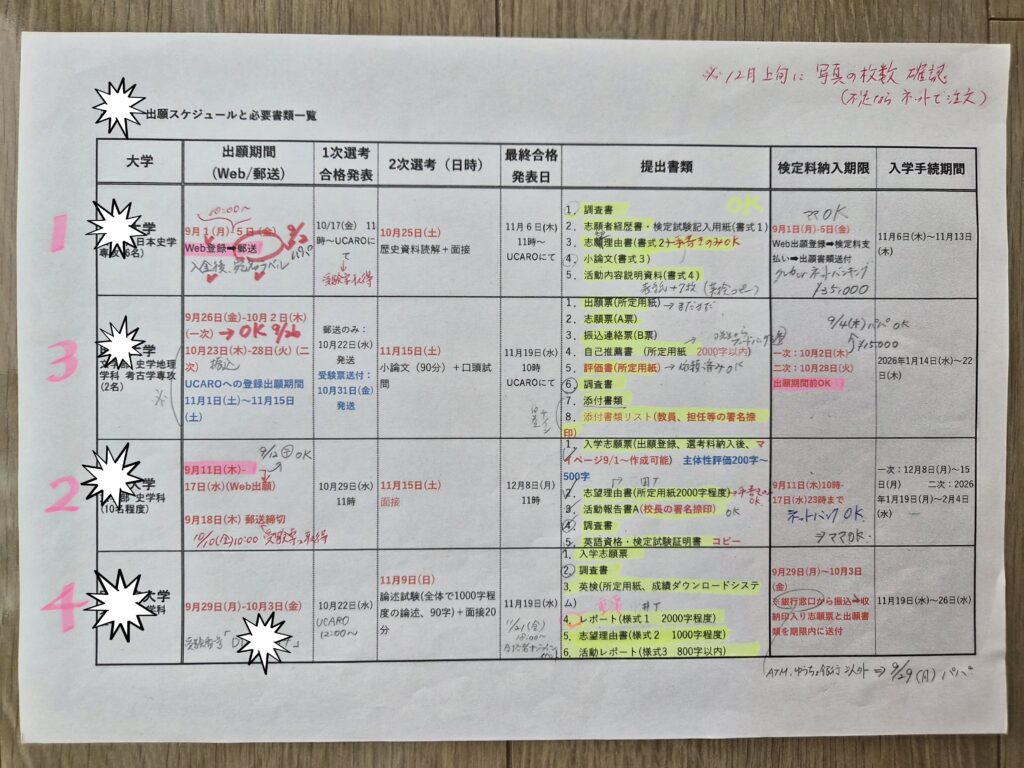 ※12月上旬に 写真の枚数 確認
(不足なら ネットで注文)
出願スケジュールと必要書類一覧
大学
出願期間
(Web/郵送)
1次選考
合格発表
2次選考(日時)
最終合格
発表日
提出書類
検定料納入期限
入学手続期間
1
学
日本史学
10:00~
9月1(月)-5日(金)
Web登録➡郵送
入金後、宛名ラベル
10/17(金) 11
時~UCAROに
て
受験票取得
10月25日(土)
歴史資料読解+面接
11月6日(木)
11時~
UCAROにて
OK
1. 調査書
2. 志願者経歴書・検定試験記入用紙(書式1)
3. 志願理由書(書式2)手書きのみOK
4. 小論文(書式3)
5. 活動内容説明資料(書式4)
ママOK
9月1日(月)-5日(金)
Web出願登録➡検定料支
払い➡出願書類送付
クレカor ネットバンキング
¥35,000
11月6日(木)~11月13日
(木)
3
史学地理
学科 考古学専攻
(2名)
9月26日(金)-10月2日(木)
(一次) → OK 9/26
10月23日(木)-28日(火)(二
次)
UCAROへの登録出願期間
11月1日(土)~11月15日
(土)
※
郵送のみ:
10月22日(水)
発送
受験票送付:
10月31日(金)
発送
11月15日(土)
小論文(90分)+口頭試
問
11月19日(水)
10時
UCAROにて
1. 出願票(所定用紙)
2. 志願票(A票)
3. 振込連絡票(B票)
4. 自己推薦書 (所定用紙 2000字以内)
5. 評価書(所定用紙)→依頼済みOK
6. 調査書
7. 添付書類
8. 添付書類リスト(教員、担任等の署名捺
印)
9/4(木)パパ OK
¥35000
一次:10月2日(木)
二次:10月28日(火)
出願期間前OK
2026年1月14日(水)~22
日(木)
2
大学
史学科
(10名程度)
9/12 OK
9月11日(木)-
17日(水)(Web出願)
9月18日(木) 郵送締切
10/10(金)10:00 受験票取得
10月29日(水)
11時
11月15日(土)
面接
12月8日(月)
11時
1. 入学志願票(出願登録、選考料納入後、マ
イページ9/1~作成可能) 主体性評価200字~
500字
2. 志望理由書(所定用紙2000字程度)→手書きのみ
OK
3. 活動報告書A(校長の署名捺印) OK
4. 調査書
5. 英語資格・検定試験証明書 コピー
9月11日(木)10時-
17日(水)23時まで
ネットバンク OK
ママOK.
一次:12月8日(月)~15
日(月) 二次:2026
年1月19日(月)~2月4日
(水)
4
大学
学科
9月29日(月)-10月3日(金)
受験番号「D
」
10月22日(水)
UCARO
12:00~
11月9日(日)
論述試験(全体で1000字程
度の論述、90字)+面接20
分
11月19日(水)
11/21(金)
1. 入学志願票
2. 調査書
3. 英検(所定用紙、成績ダウンロードシステ
ム)
4. レポート(様式1 2000字程度)
5. 志望理由書(様式2 1000字程度)
6. 活動レポート(様式3 800字以内)
9月29日(月)~10月3日
(金)
※銀行窓口から振込➡収
納印入り志願票と出願書
類を期限内に送付
11月19日(水)~26日(水)
ATM、ゆうちょ銀行以外 ⇒ 9/29(月)パパ